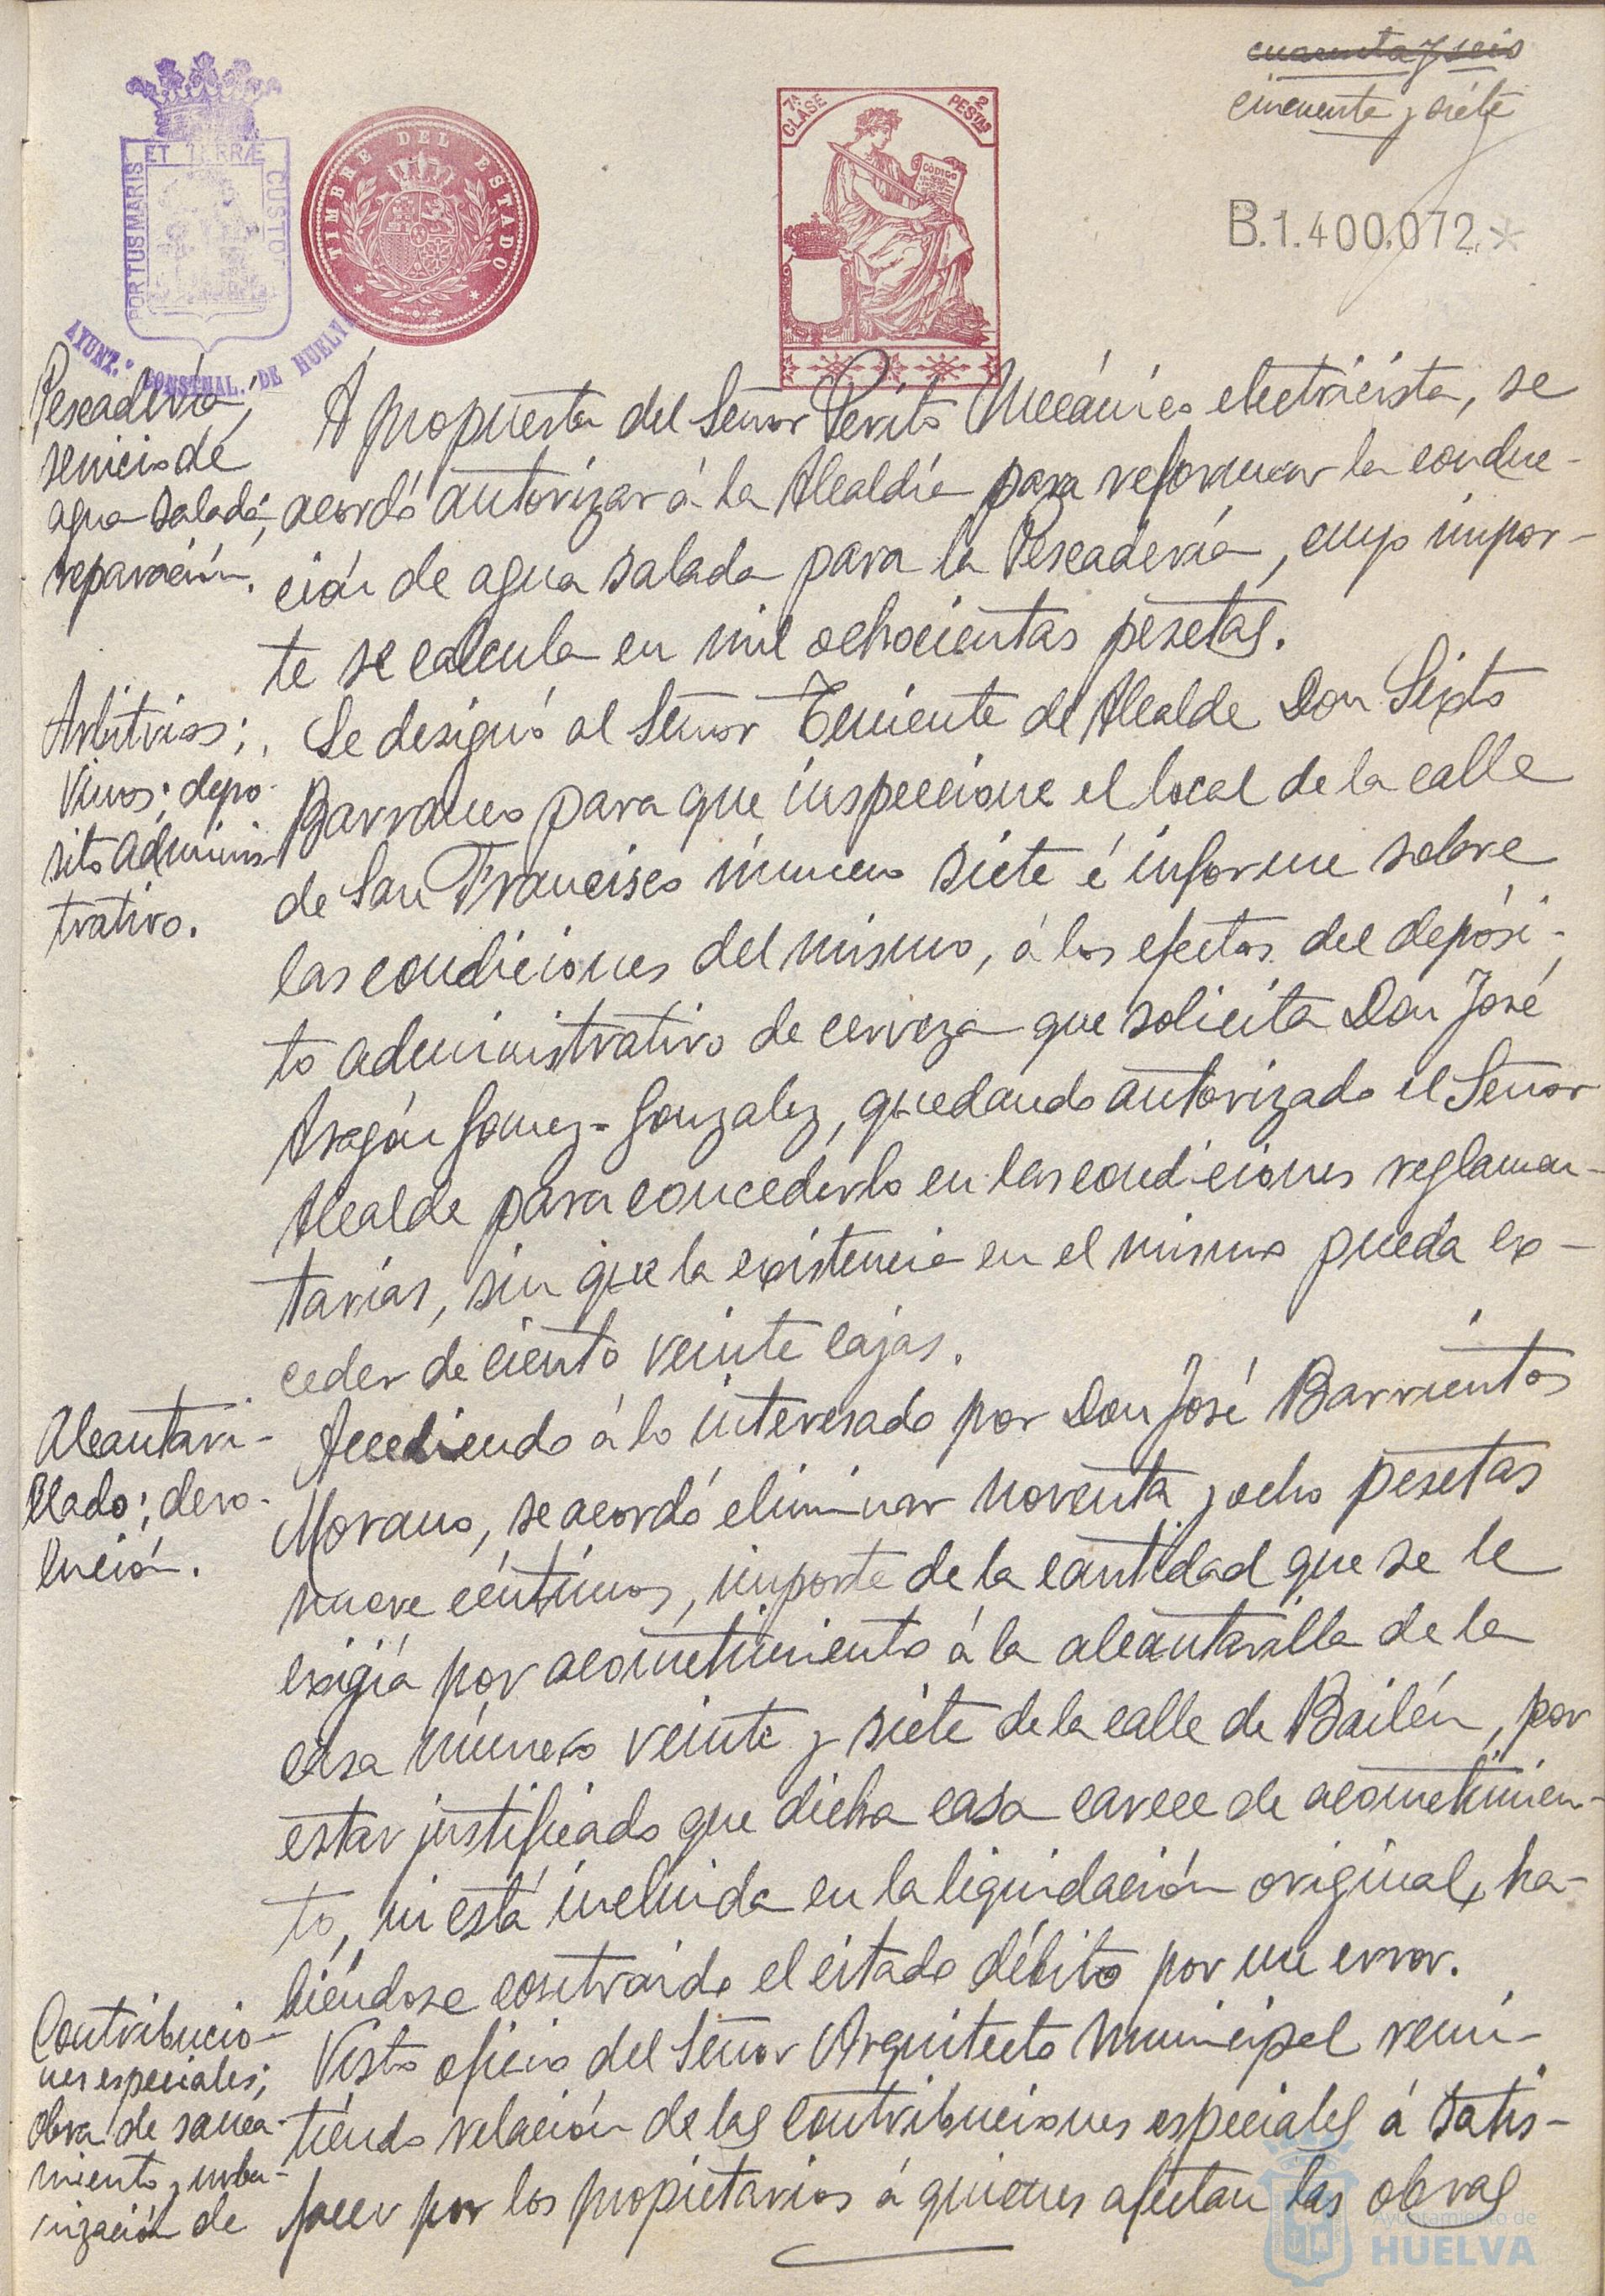 cuarenta y seis
cincuenta y siete
B.1.400.072 *
PORTUS MARIS ET TERRÆ CUSTO
AYUNT.º CONSTNAL. DE HUELVA
TIMBRE DEL ESTADO
7ª CLASE
2 PESTAS
CODIGO
Pescadería;
servicio de
agua salada;
reparación.
A propuesta del Señor Perito Mecánico electricista, se
acordó autorizar á la Alcaldía para reformar la conduc-
ción de agua salada para la Pescadería, cuyo impor-
te se calcula en mil ochocientas pesetas.
Arbitrios;
Vinos; depó-
sito adminis-
trativo.
Se designó al Señor Teniente de Alcalde Don Sixto
Barranco para que inspeccione el local de la calle
de San Francisco número siete é informe sobre
las condiciones del mismo, á los efectos del depósi-
to administrativo de cerveza que solicita Don José
Aragón Gomez-Gonzalez, quedando autorizado el Señor
Alcalde para concederlo en las condiciones reglamen-
tarias, sin que la existencia en el mismo pueda ex-
ceder de ciento veinte cajas.
Alcantari-
llado; devo-
lución.
Accediendo á lo interesado por Don José Barrientos
Morano, se acordó eliminar noventa y ocho pesetas
nueve céntimos, importe de la cantidad que se le
exigía por acometimiento á la alcantarilla de la
casa número veinte y siete de la calle de Bailén, por
estar justificado que dicha casa carece de acometimien-
to, ni está incluida en la liquidación original, ha-
biéndose contraido el citado débito por un error.
Contribucio-
nes especiales;
obra de sanea-
miento y urba-
nización de
Visto oficio del Señor Arquitecto Municipal remi-
tiendo relación de las contribuciones especiales á satis-
facer por los propietarios á quienes afectan las obras
Ayuntamiento de
HUELVA